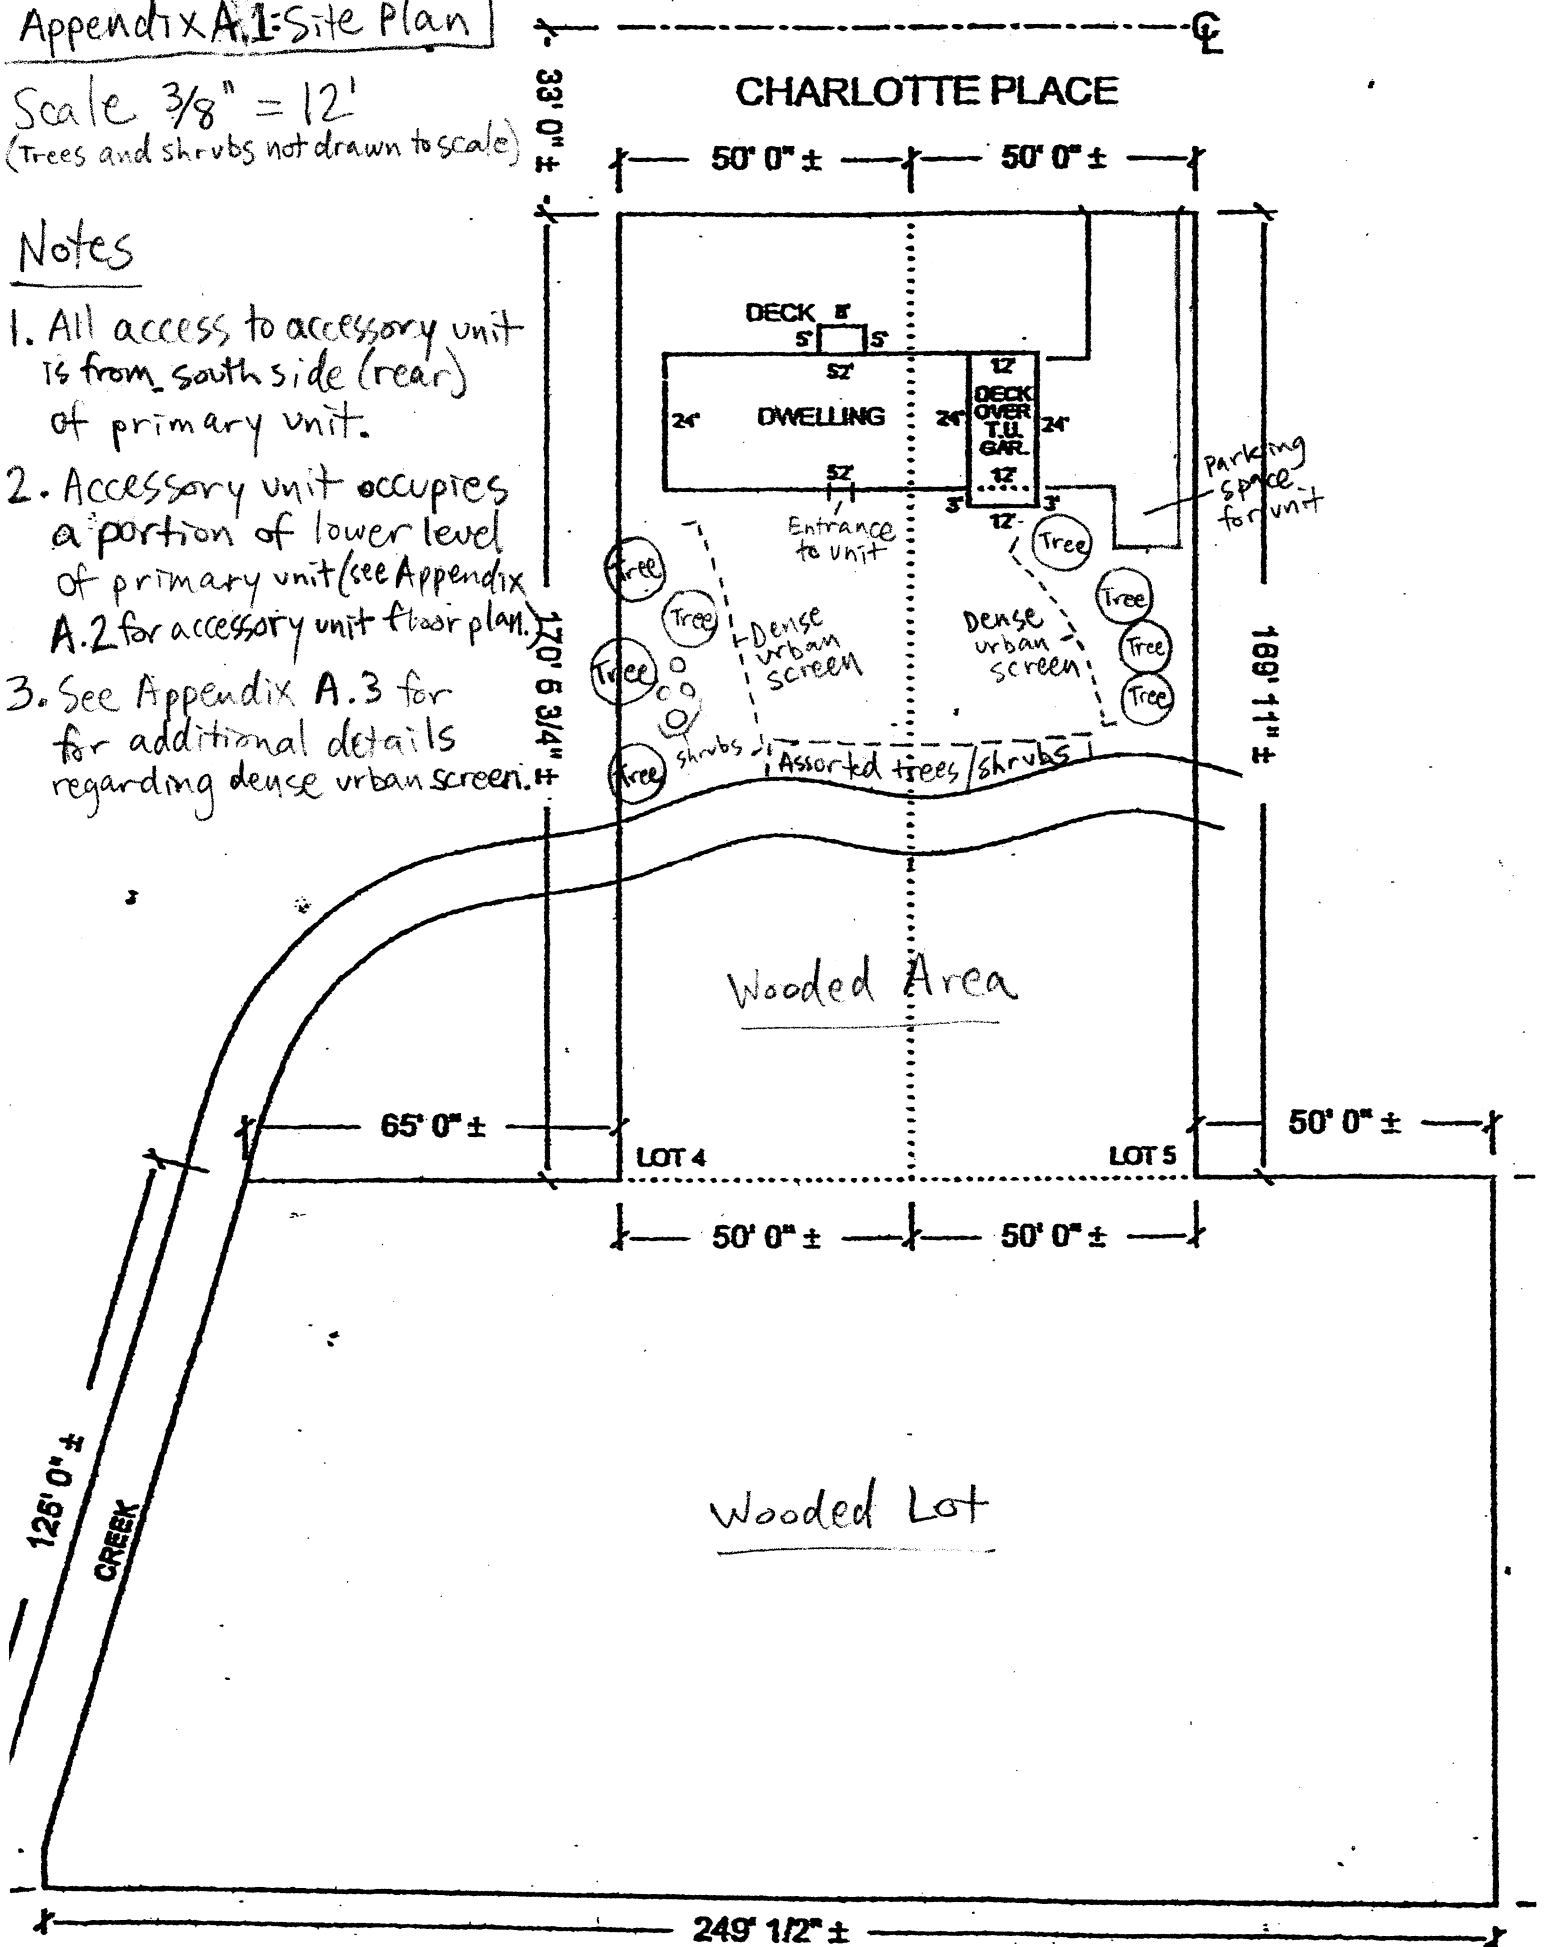 Appendix A.1: Site Plan
Scale 3/8" = 12'
(Trees and shrubs not drawn to scale)
Notes
1. All access to accessory unit
is from south side (rear)
of primary unit.
2. Accessory unit occupies
a portion of lower level
of primary unit (see Appendix
A.2 for accessory unit floor plan.)
3. See Appendix A.3 for
for additional details
regarding dense urban screen.
CL
33' 0" ±
CHARLOTTE PLACE
50' 0" ±
50' 0" ±
DECK 8'
5'
5'
52'
24'
DWELLING
24'
12'
DECK
OVER
T.U.
GAR.
24'
12'
52'
3'
3'
12'
Entrance
to unit
Parking
space
for unit
Tree
Tree
Tree
Tree
Tree
Tree
Tree
Tree
Dense
urban
screen
Dense
urban
screen
shrubs
Assorted trees/shrubs
170' 6 3/4" ±
169' 11" ±
Wooded Area
65' 0" ±
50' 0" ±
LOT 4
LOT 5
50' 0" ±
50' 0" ±
125' 0" ±
CREEK
Wooded Lot
249' 1/2" ±